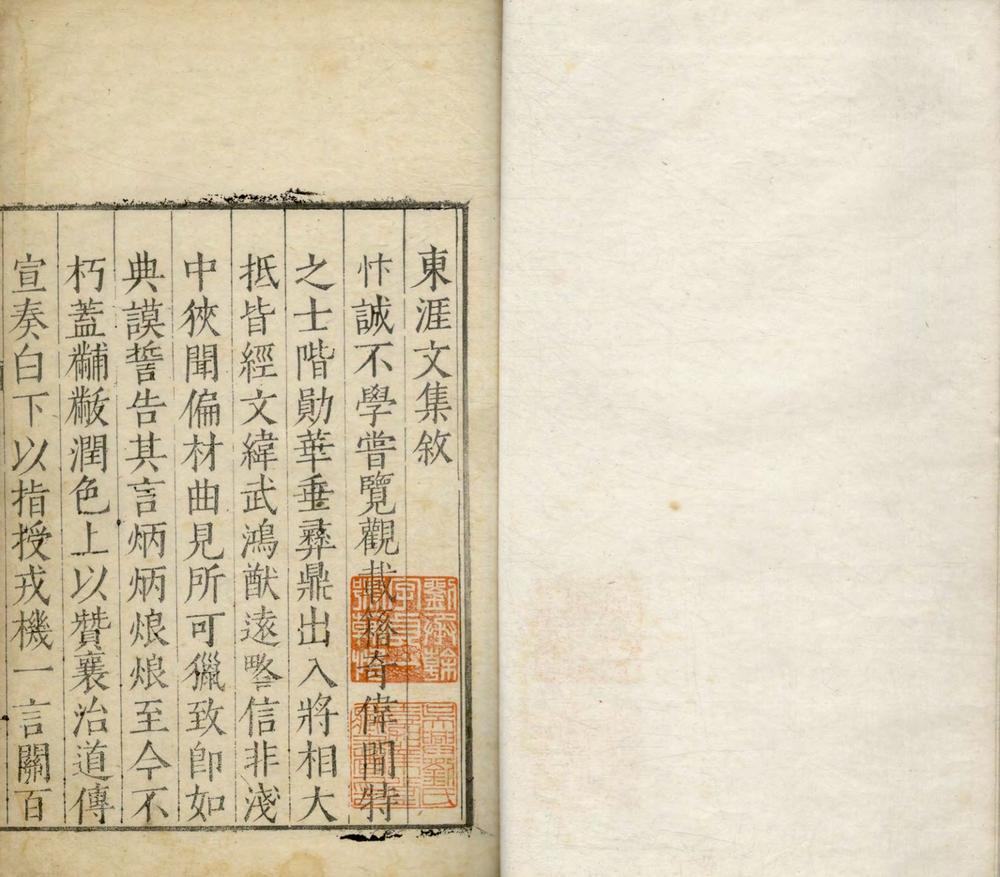 東涯文集敘
忭誠不學嘗覽觀載籍奇偉閒特
之士階勛華垂彝鼎出入將相大
抵皆經文緯武鴻猷遠畧信非淺
中狹聞偏材曲見所可獵致卽如
典謨誓告其言炳炳烺烺至今不
朽蓋黼黻潤色上以贊襄治道傳
宣奏白下以指授戎機一言關百
吳興劉氏